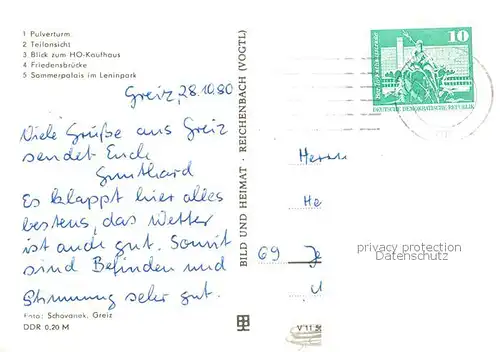 1 Pulverturm
2 Teilansicht
3 Blick zum HO-Kaufhaus
4 Friedensbrücke
5 Sommerpalais im Leninpark
Greiz, 28.10.80
Viele Grüße aus Greiz
sendet Euch
Gunthard
Es klappt hier alles
bestens, das Wetter
ist auch gut. Somit
sind Befinden und
Stimmung sehr gut.
Foto: Schovanek, Greiz
DDR 0,20 M
BILD UND HEIMAT · REICHENBACH (VOGTL)
10
DEUTSCHE DEMOKRATISCHE REPUBLIK
Herrn
He
69 Je
privacy protection
Datenschutz
V 11 50